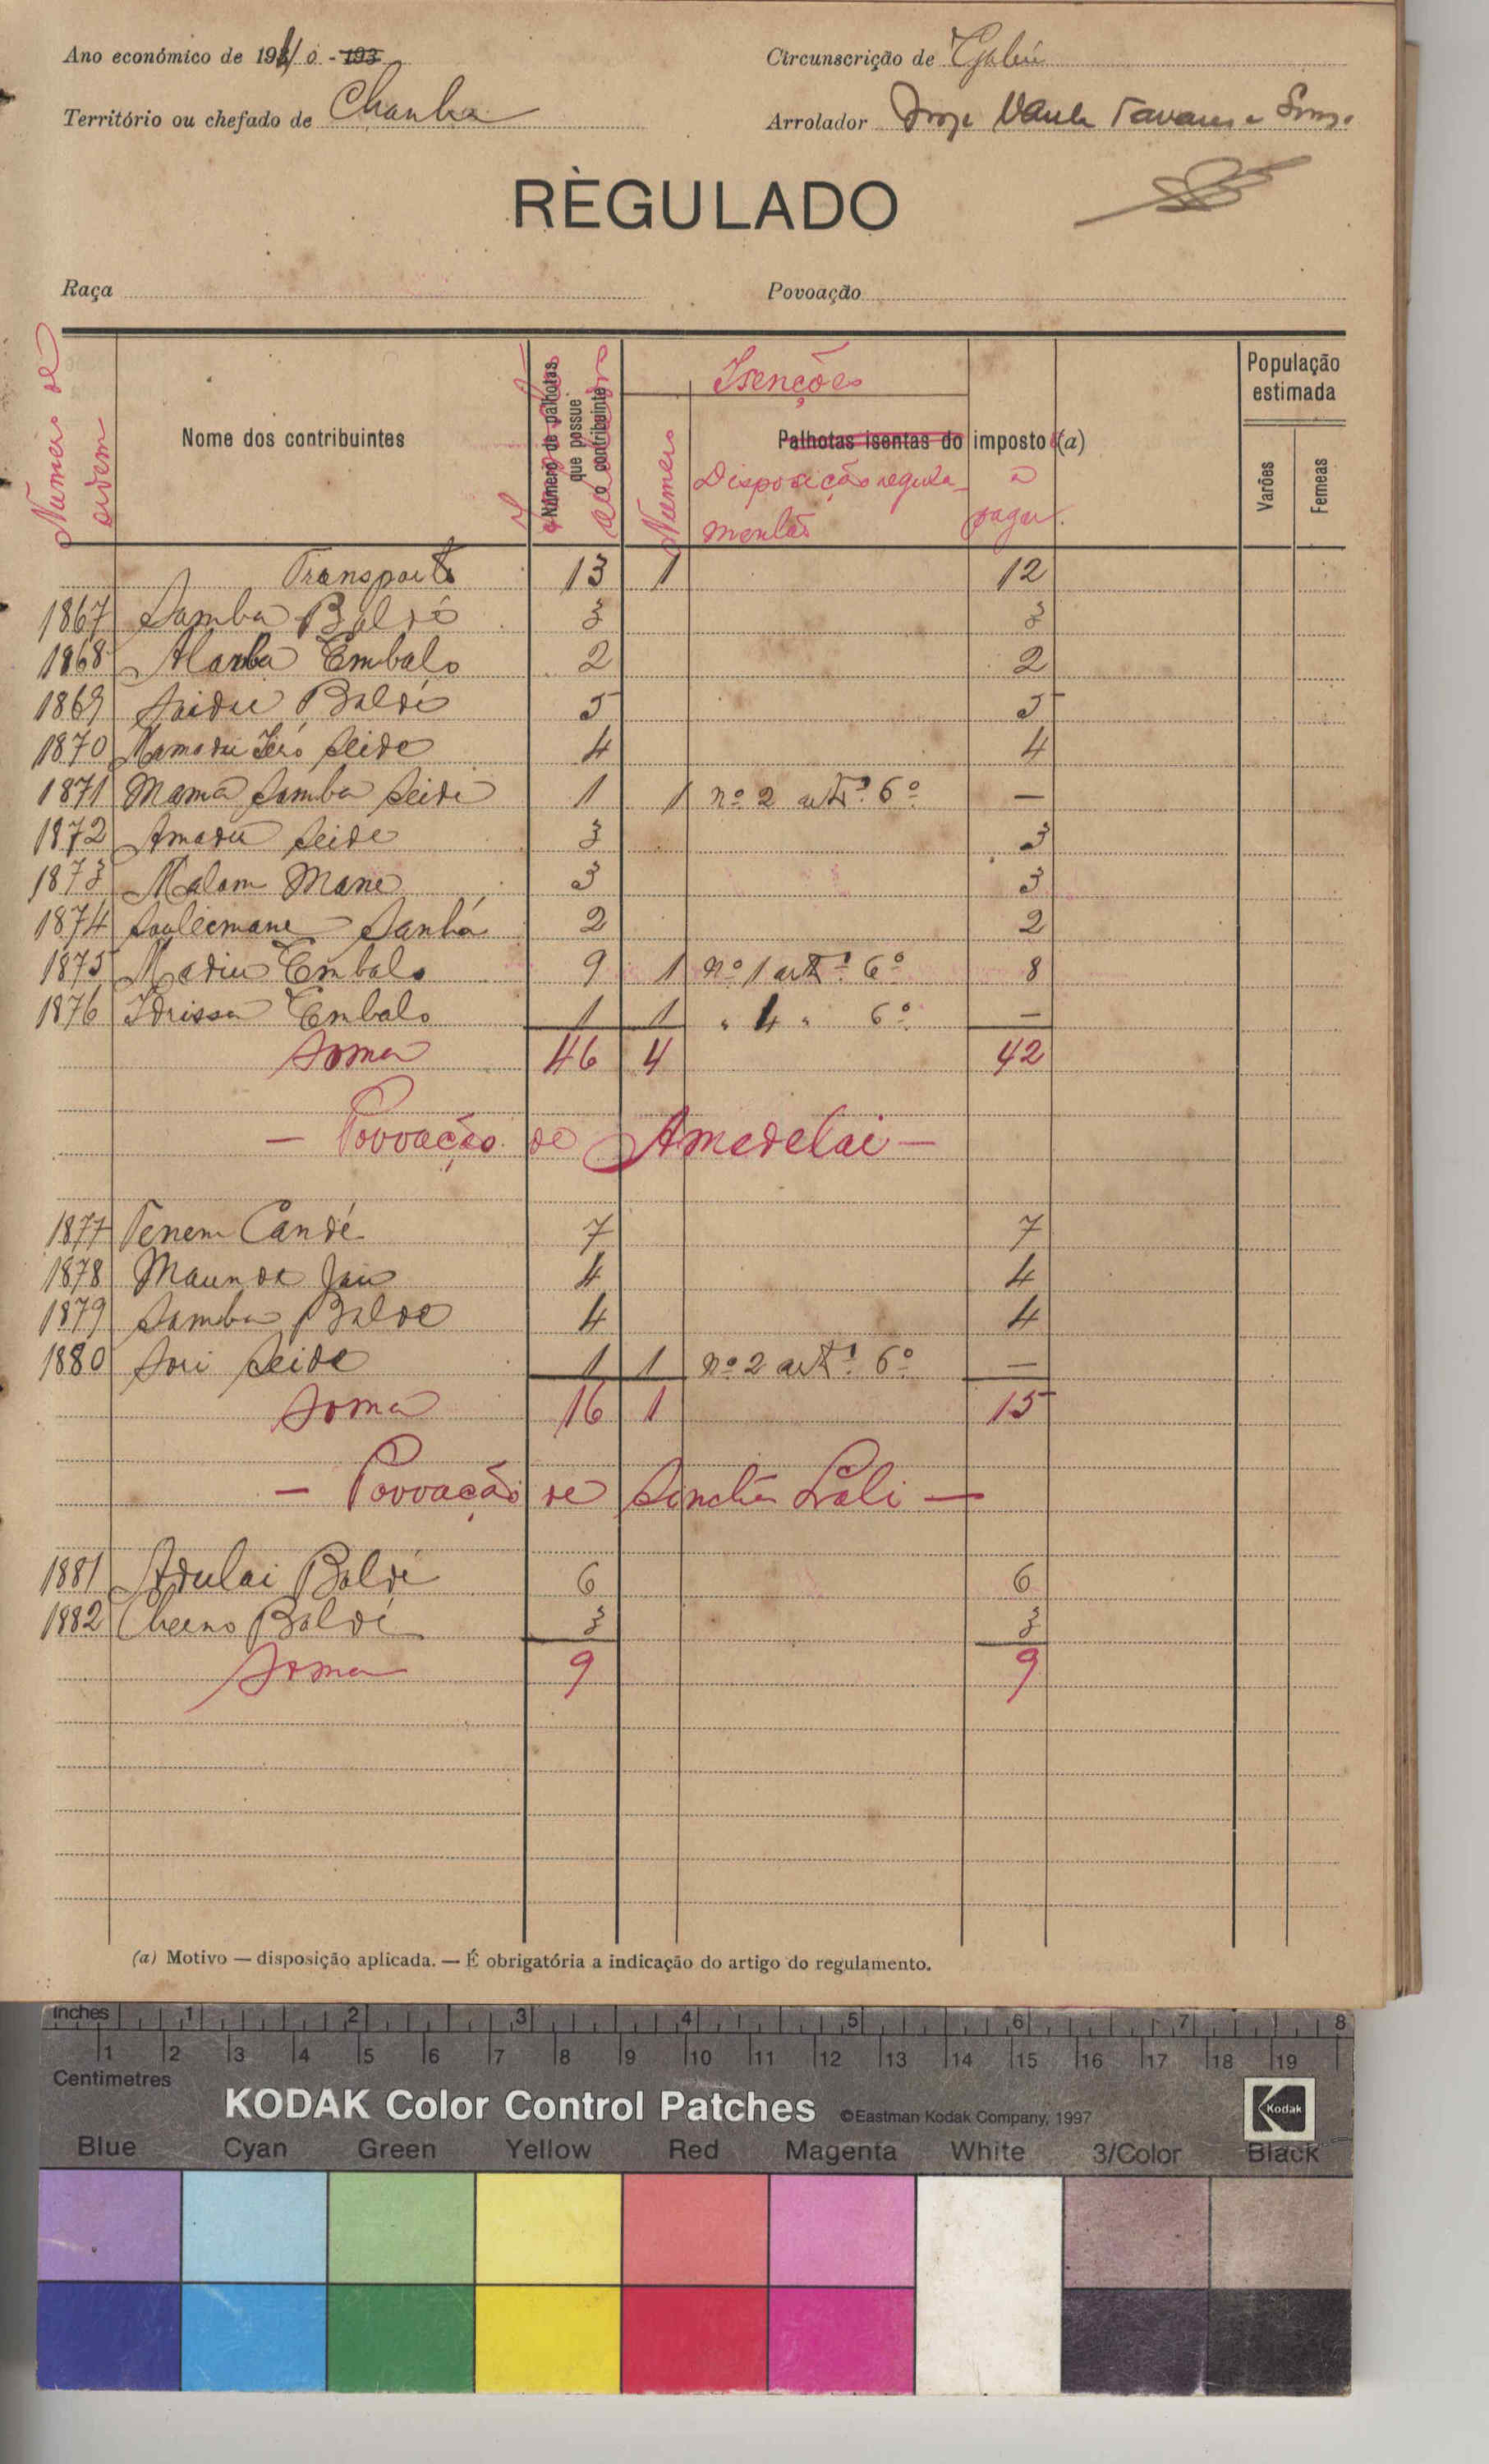 Ano económico de 194/0 - 193
Circunscrição de Gabú
Território ou chefado de Chanha
Arrolador Tavares
RÈGULADO
Raça
Povoação
Numero de ordem
Nome dos contribuintes
Número de palhotas que possue o contribuinte
Isenções
Numero
Palhotas isentas do imposto (a)
Disposição regula-
mentar
a pagar
População estimada
Varões
Femeas
Transporte 13 1 12
1867 Samba Baldé 3 3
1868 Alarba Embalo 2 2
1869 Saidu Baldé 5 5
1870 Mamadu Seide 4 4
1871 Mama Samba Seidi 1 1 nº 2 artº 6º —
1872 Amadu Seide 3 3
1873 Malam Mane 3 3
1874 Souleimane Sanhá 2 2
1875 Madiu Embalo 9 1 nº 1 artº 6º 8
1876 Idrissa Embalo 1 1 " 4 " 6º —
Soma 46 4 42
— Povoação de Amedelai —
1877 Tenem Candé 7 7
1878 Maunde Jau 4 4
1879 Samba Balde 4 4
1880 Sori Seide 1 1 nº 2 artº 6º —
Soma 16 1 15
— Povoação de Sinchã Lali —
1881 Adulai Baldé 6 6
1882 Cherno Baldé 3 3
Soma 9 9
(a) Motivo — disposição aplicada. — É obrigatória a indicação do artigo do regulamento.
Inches 1 2 3 4 5 6 7 8
1 2 3 4 5 6 7 8 9 10 11 12 13 14 15 16 17 18 19
Centimetres
KODAK Color Control Patches ©Eastman Kodak Company, 1997
Kodak
Blue Cyan Green Yellow Red Magenta White 3/Color Black